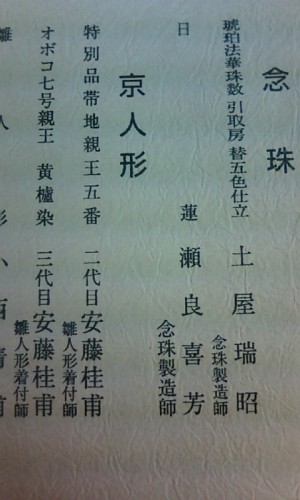 念珠
琥珀法華珠数 引取房 替五色仕立 土屋瑞昭 念珠製造師
日 蓮 瀬良喜芳 念珠製造師
京人形
特別品帯地親王五番 二代目 安藤桂甫 雛人形着付師
オボコ七号親王 黄櫨染 三代目 安藤桂甫 雛人形着付師
雛人形 小西